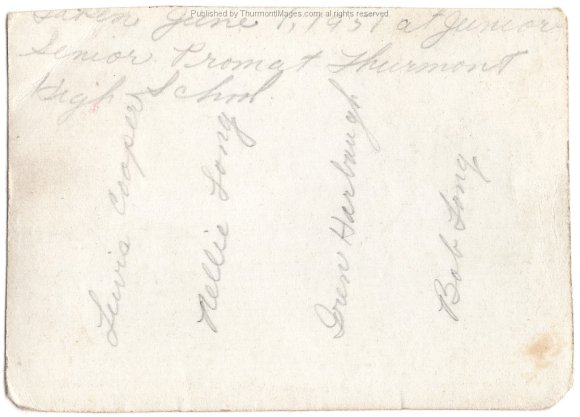 Published by ThurmontImages.com, all rights reserved
Taken June 1, 1937 at Junior
Senior Prom at Thurmont
High School
Lewis Cooper
Nellie Long
Iren Harbaugh
Bob Long